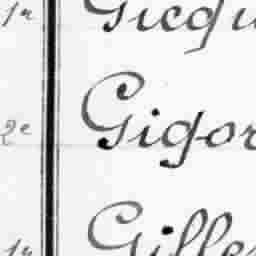 1re Gicqu
2e Gigor
1re Giller